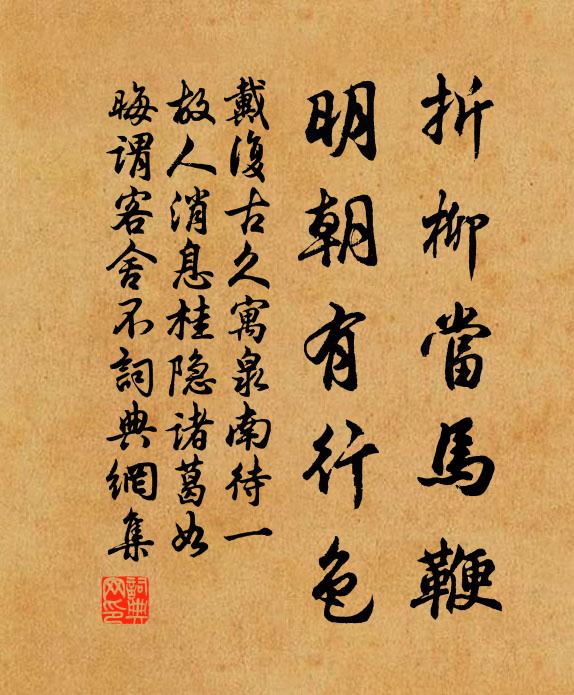 折柳當馬鞭
明朝有行色
戴復古久寓泉南待一
故人消息桂隐諸葛如
晦谓客舍不詞典網集
詞典网印